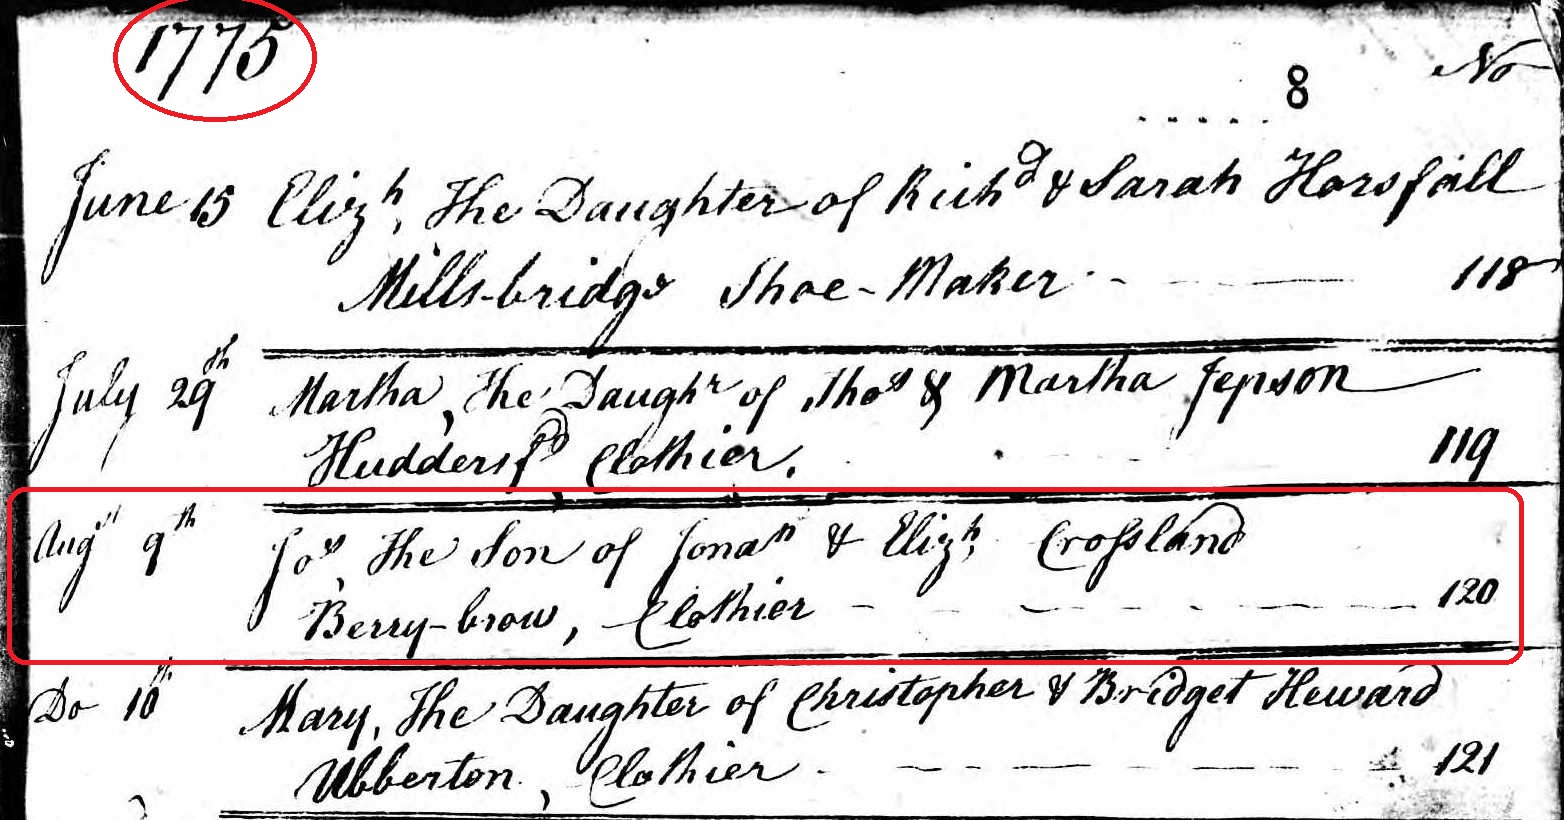 1775
8 No
June 15 Eliz.h, The Daughter of Rich.d & Sarah Horsfall
Mills-bridge Shoe-Maker 118
July 29th Martha, The Daugh.r of Tho.s & Martha Jepson
Huddersf.d Clothier. 119
Aug.st 9th Jos., The Son of Jona.n & Eliz.h Crossland
Berry-brow, Clothier 120
Do 10th Mary, The Daughter of Christopher & Bridget Heward
Ubberton, Clothier 121